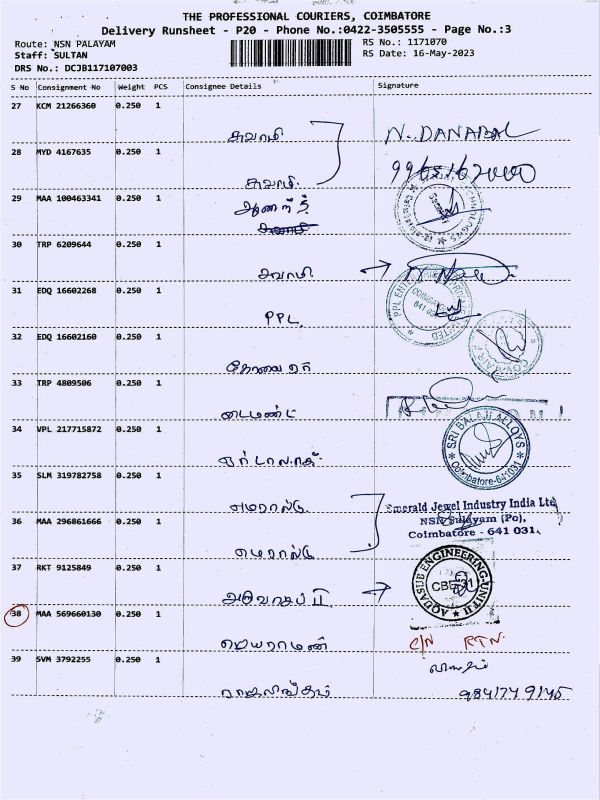 THE PROFESSIONAL COURIERS, COIMBATORE
Delivery Runsheet - P20 - Phone No.:0422-3505555 - Page No.:3
Route: NSN PALAYAM
RS No.: 1171070
Staff: SULTAN
RS Date: 16-May-2023
DRS No.: DCJB117107003
S No Consignment No Weight PCS Consignee Details Signature
27 KCM 21266360 0.250 1
சுவாமி N. DANAPAL
28 MYD 4167635 0.250 1
சுவாமி
29 MAA 100463341 0.250 1
ஆனந்த்
30 TRP 6209644 0.250 1
சுவாமி
31 EDQ 16602268 0.250 1
PPL
PPL
COIMBATORE
641 031
32 EDQ 16602160 0.250 1
கோவை ஏர்
33 TRP 4809506 0.250 1
டைமண்ட்
34 VPL 217715872 0.250 1
SRI BALAJI ALLOYS
Coimbatore-641031
35 SLM 319782758 0.250 1
எமரால்டு
Emerald Jewel Industry India Ltd
NSN Palayam (Po),
Coimbatore - 641 031.
36 MAA 296861666 0.250 1
எமரால்டு
37 RKT 9125849 0.250 1
AQUASUB ENGINEERING-UNIT II
CBE-31
38 MAA 569660130 0.250 1
ஜெயராமன் C/N RTN.
39 SVM 3792255 0.250 1
ராஜலிங்கம் 9841749145